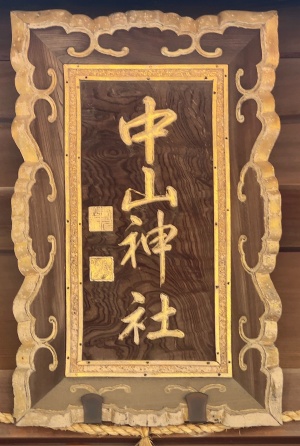 中山神社